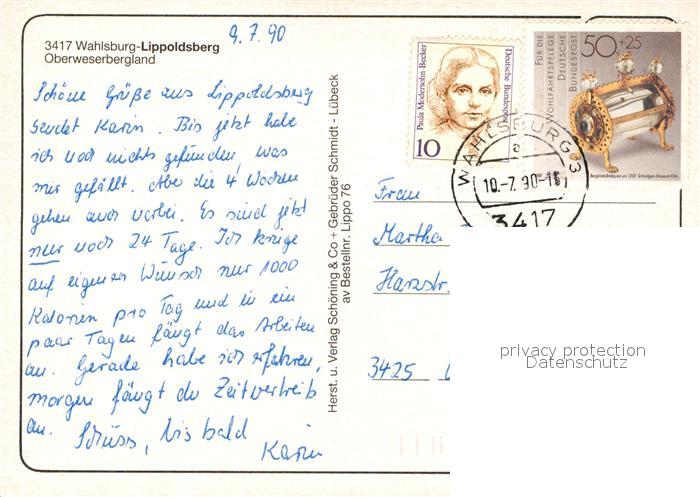 9.7.90
3417 Wahlsburg-Lippoldsberg
Oberweserbergland
Schöne Grüße aus Lippoldsberg
sendet Karin. Bis jetzt habe
ich noch nichts gefunden, was
mir gefällt. Aber die 4 Wochen
gehen auch vorbei. Es sind jetzt
nur noch 24 Tage. Ich kriege
auf eigenen Wunsch nur 1000
Kalorien pro Tag und in ein
paar Tagen fängt das Arbeiten
an. Gerade habe ich erfahren,
morgen fängt der Zeitvertreib
an. Schüss, bis bald
Karin
Herst. u. Verlag Schöning & Co + Gebrüder Schmidt - Lübeck
av Bestellnr. Lippo 76
Paula Modersohn-Becker
Deutsche Bundespost
10
FÜR DIE
WOHLFAHRTSPFLEGE
DEUTSCHE
BUNDESPOST
50+25
Bergkristallreliquiar um 1200 Schnütgen-Museum Köln
WAHLSBURG 3
a
10.-7.90-15
3417
Frau
Martha
Harzstr.
3425
privacy protection
Datenschutz